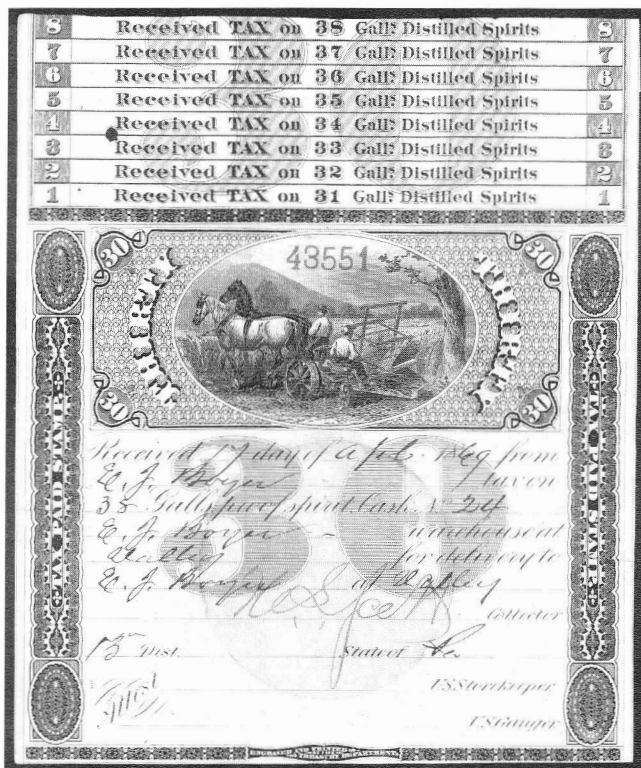 8 Received TAX on 38 Galls Distilled Spirits 8
7 Received TAX on 37 Galls Distilled Spirits 7
6 Received TAX on 36 Galls Distilled Spirits 6
5 Received TAX on 35 Galls Distilled Spirits 5
4 Received TAX on 34 Galls Distilled Spirits 4
3 Received TAX on 33 Galls Distilled Spirits 3
2 Received TAX on 32 Galls Distilled Spirits 2
1 Received TAX on 31 Galls Distilled Spirits 1
30 30
43551
THIRTY THIRTY
30 30
TAX PAID STAMP TAX PAID STAMP
30
Received 17 day of 1869 from
E. J. Boyer tax on
38 Galls proof spirit Cask No 24
E. J. Boyer warehouse at
for delivery to
E. J. Boyer at
Collector
Dist. State of
U.S. Storekeeper
U.S. Gauger
ENGRAVED AND PRINTED
TREASURY DEPARTMENT